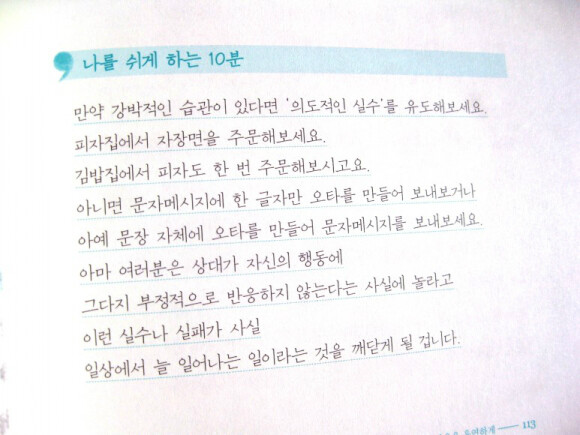 나를 쉬게 하는 10분
만약 강박적인 습관이 있다면 '의도적인 실수'를 유도해보세요.
피자집에서 자장면을 주문해보세요.
김밥집에서 피자도 한 번 주문해보시고요.
아니면 문자메시지에 한 글자만 오타를 만들어 보내보거나
아예 문장 자체에 오타를 만들어 문자메시지를 보내보세요.
아마 여러분은 상대가 자신의 행동에
그다지 부정적으로 반응하지 않는다는 사실에 놀라고
이런 실수나 실패가 사실
일상에서 늘 일어나는 일이라는 것을 깨닫게 될 겁니다.
113